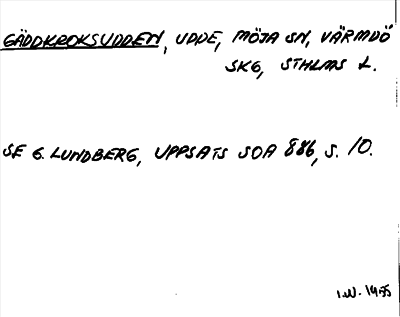 GÄDDKROKSUDDEN, UDDE, MÖJA SN, VÄRMDÖ
SKG, STHLMS L.
SE G. LUNDBERG, UPPSATS SOA 886, S. 10.
I.W. 1955